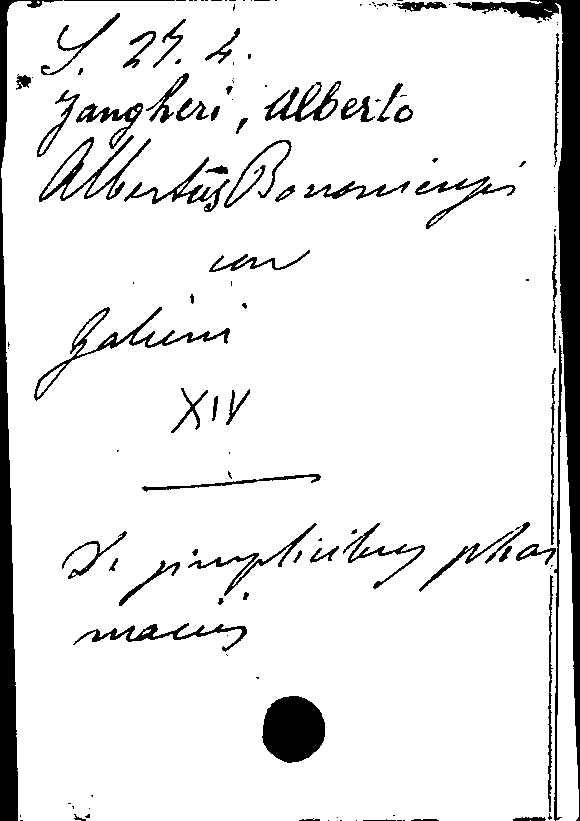 S. 27. 4.
Zangheri, Alberto
Albertus Bononiensis
von
Galieni
XIV
De simplicibus phar
maciis